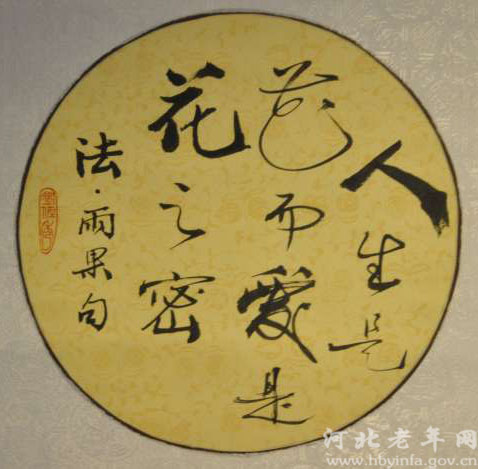 人生是
花而爱是
花之密
法·雨果句
河北老年网
www.hbyinfa.gov.cn